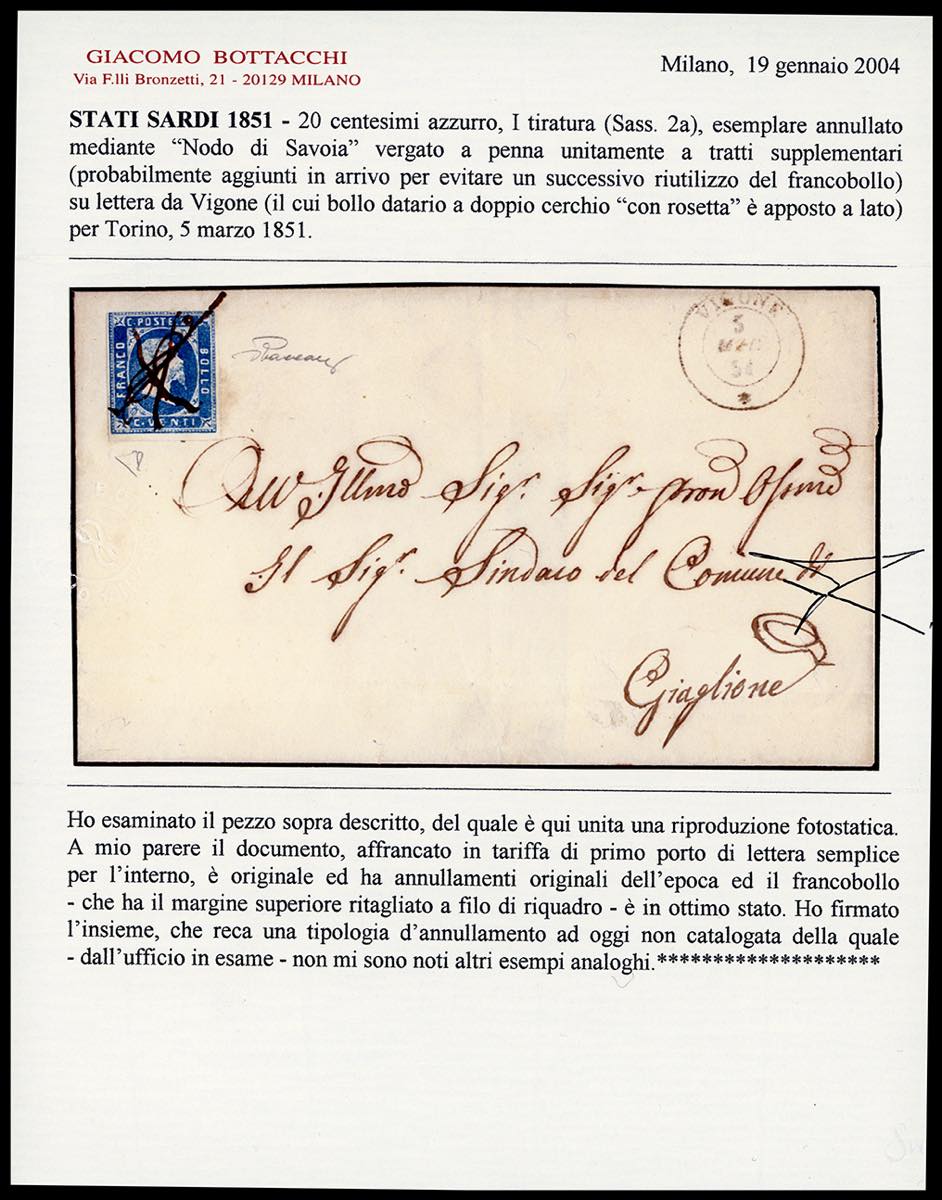 GIACOMO BOTTACCHI
Via F.lli Bronzetti, 21 - 20129 MILANO
Milano, 19 gennaio 2004
STATI SARDI 1851 - 20 centesimi azzurro, I tiratura (Sass. 2a), esemplare annullato
mediante “Nodo di Savoia” vergato a penna unitamente a tratti supplementari
(probabilmente aggiunti in arrivo per evitare un successivo riutilizzo del francobollo)
su lettera da Vigone (il cui bollo datario a doppio cerchio “con rosetta” è apposto a lato)
per Torino, 5 marzo 1851.
C. POSTE
FRANCO
BOLLO
C. VENTI
VIGONE
5
MAR
All' Illmo Sigr. Sigr. pron
Il Sigr. Sindaco del Comune di
Giaglione
Ho esaminato il pezzo sopra descritto, del quale è qui unita una riproduzione fotostatica.
A mio parere il documento, affrancato in tariffa di primo porto di lettera semplice
per l’interno, è originale ed ha annullamenti originali dell’epoca ed il francobollo
- che ha il margine superiore ritagliato a filo di riquadro - è in ottimo stato. Ho firmato
l’insieme, che reca una tipologia d’annullamento ad oggi non catalogata della quale
- dall’ufficio in esame - non mi sono noti altri esempi analoghi.********************